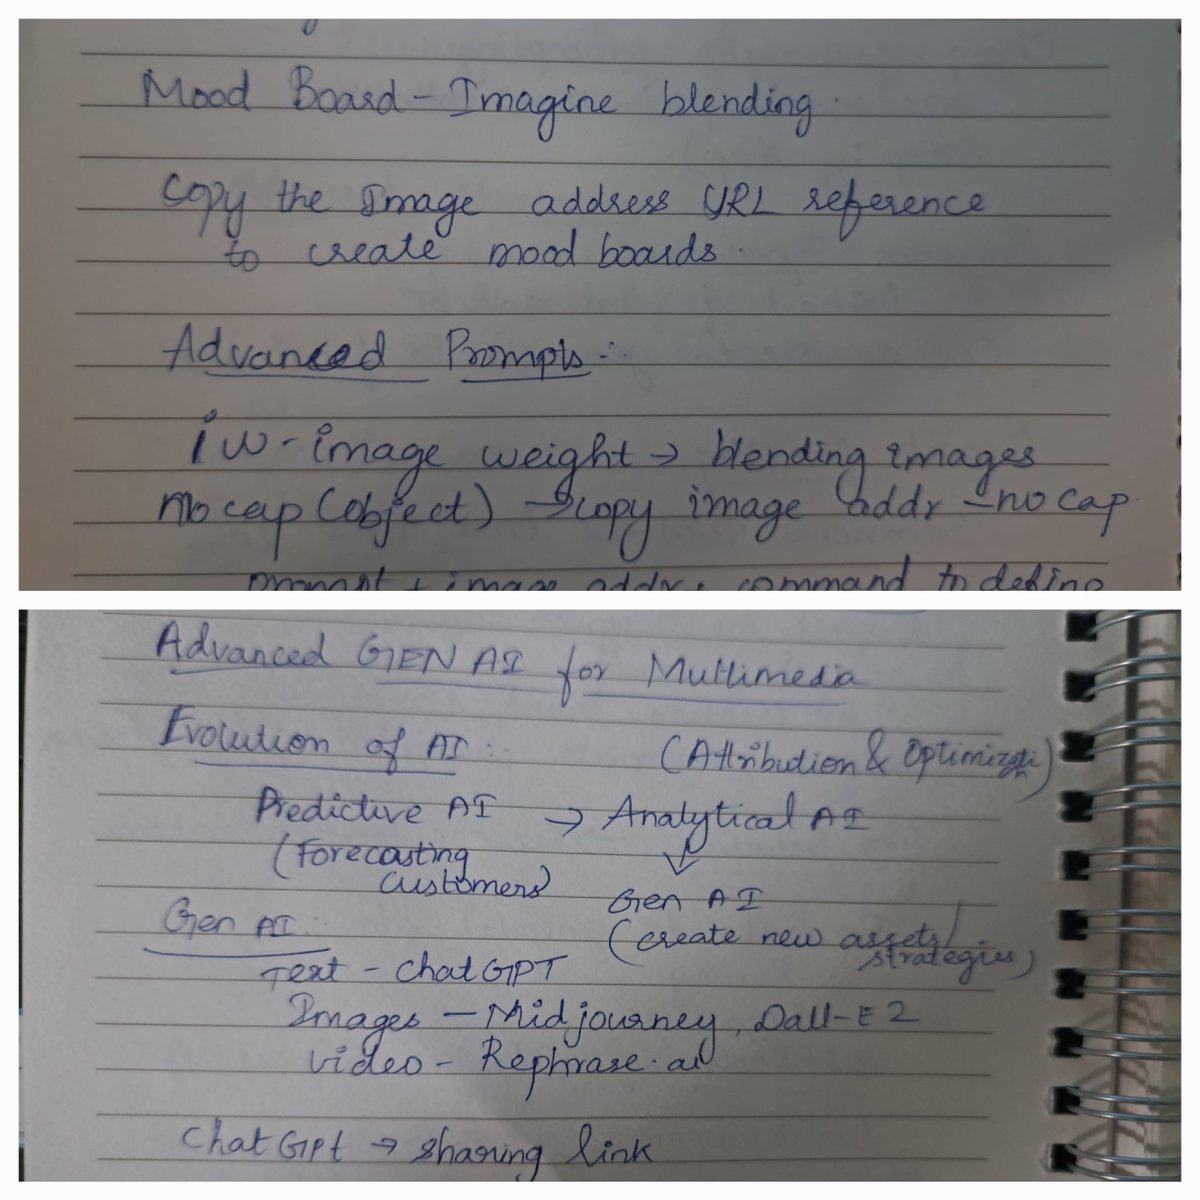 Mood Board - Imagine blending
Copy the Image address URL reference
to create mood boards.
Advanced Prompts :-
iw - image weight → blending images
no cap (object) → copy image addr - no cap
prompt + image addr. command to define
Advanced GEN AI for Multimedia
Evolution of AI :
(Attribution & Optimizati)
Predictive AI → Analytical AI
(Forecasting
customers)
Gen AI
(create new assets/
strategies)
Gen AI :
Text - ChatGPT
Images - Midjourney, Dall-E 2
Video - Rephrase.ai
ChatGPt → sharing link